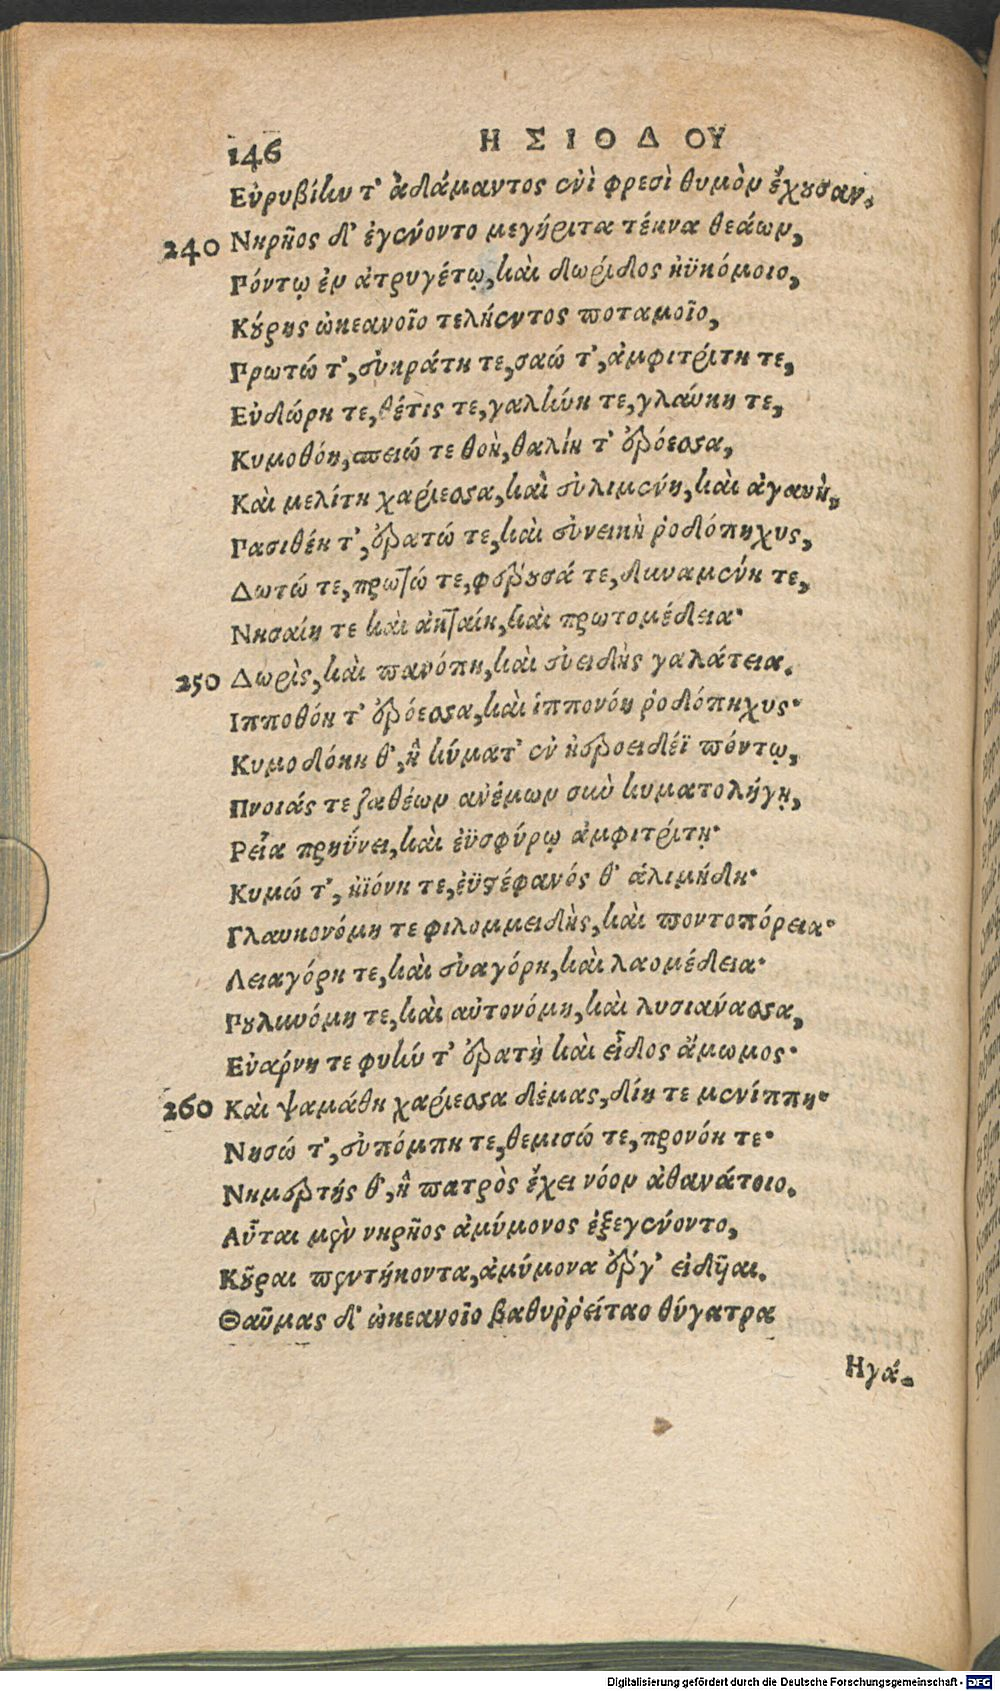 146 ΗΣΙΟΔΟΥ
Εὐρυβίην τ' ἀδάμαντος ἐνὶ φρεσὶ θυμὸν ἔχουσαν.
240 Νηρῆος δ' ἐγένοντο μεγήριτα τέκνα θεάων,
Πόντῳ ἐν ἀτρυγέτῳ, καὶ Δωρίδος ἠϋκόμοιο,
Κούρης ὠκεανοῖο τελήεντος ποταμοῖο,
Πρωτώ τ', εὐκράτη τε, σαώ τ', ἀμφιτρίτη τε,
Εὐδώρη τε, θέτις τε, γαλήνη τε, γλαύκη τε,
Κυμοθόη, σπειώ τε θοὴ, θαλίη τ' ἐρόεσσα,
Καὶ μελίτη χαρίεσσα, καὶ εὐλιμένη, καὶ ἀγαυὴ,
Πασιθέη τ', ἐρατώ τε, καὶ εὐνείκη ῥοδόπηχυς,
Δωτώ τε, πρωτώ τε, φέρουσά τε, δυναμένη τε,
Νησαίη τε καὶ ἀκταίη, καὶ πρωτομέδεια·
250 Δωρὶς, καὶ πανόπη, καὶ εὐειδὴς γαλάτεια.
Ιπποθόη τ' ἐρόεσσα, καὶ ἱππονόη ῥοδόπηχυς·
Κυμοδόκη θ', ἣ κύματ' ἐν ἠεροειδέϊ πόντῳ,
Πνοιάς τε ζαθέων ἀνέμων σὺν κυματολήγῃ,
Ρεῖα πρηΰνει, καὶ ἐϋσφύρῳ ἀμφιτρίτῃ·
Κυμώ τ', ἠϊόνη τε, ἐϋστέφανός θ' ἁλιμήδη·
Γλαυκονόμη τε φιλομμειδὴς, καὶ ποντοπόρεια·
Λειαγόρη τε, καὶ εὐαγόρη, καὶ λαομέδεια·
Πουλυνόμη τε, καὶ αὐτονόμη, καὶ λυσιάνασσα,
Εὐάρνη τε φυήν τ' ἐρατὴ καὶ εἶδος ἄμωμος·
260 Καὶ ψαμάθη χαρίεσσα δέμας, δίη τε μενίππη·
Νησώ τ', εὐπόμπη τε, θεμισώ τε, προνόη τε·
Νημερτής θ', ἣ πατρὸς ἔχει νόον ἀθανάτοιο.
Αὗται μὲν νηρῆος ἀμύμονος ἐξεγένοντο,
Κοῦραι πεντήκοντα, ἀμύμονα ἔργ' εἰδῦαι.
Θαῦμας δ' ὠκεανοῖο βαθυῤῥείταο θύγατρα
Ηγά-
Digitalisierung gefördert durch die Deutsche Forschungsgemeinschaft - DFG